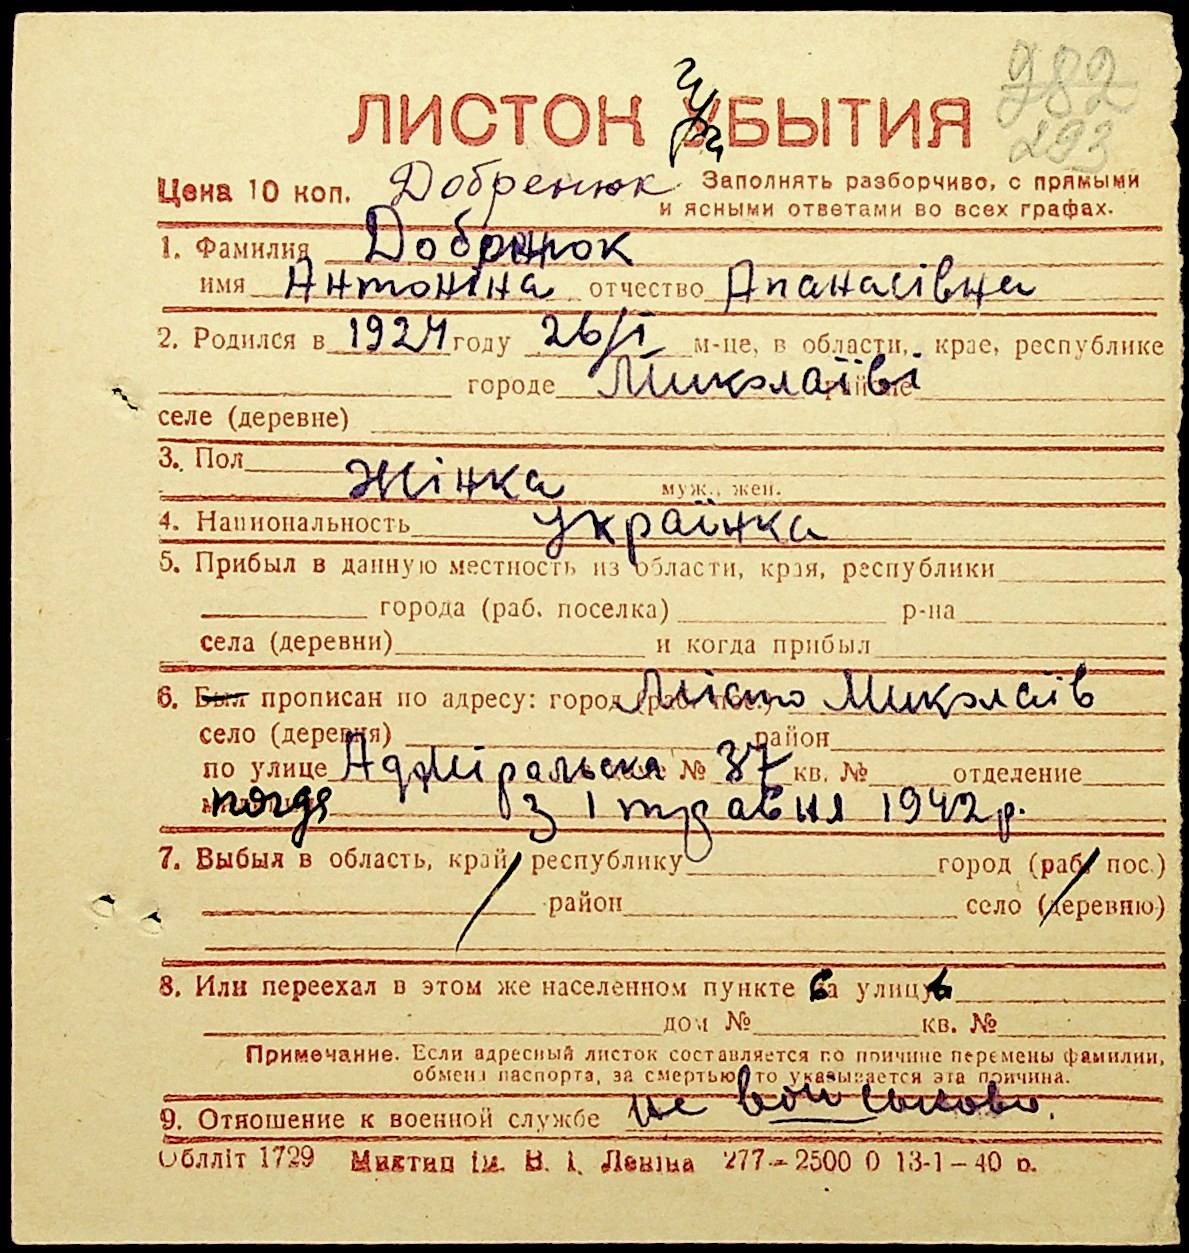 982
293
ЛИСТОК УБЫТИЯ
Цена 10 коп. Добренюк Заполнять разборчиво, с прямыми
и ясными ответами во всех графах.
1. Фамилия Добренюк
имя Антоніна отчество Апанасівна
2. Родился в 1924 году 26/I м-це, в области, крае, республике
городе Миколаїві
селе (деревне)
3. Пол Жінка муж., жен.
4. Национальность українка
5. Прибыл в данную местность из области, края, республики
города (раб. поселка) р-на
села (деревни) и когда прибыл
6. Был прописан по адресу: город (раб. пос.) Місто Миколаїв
село (деревня) район
по улице Адміральска № 37 кв. № отделение
з 1 травня 1942 р.
7. Выбыл в область, край, республику город (раб. пос.)
район село (деревню)
8. Или переехал в этом же населенном пункте на улицу
дом № кв. №
Примечание. Если адресный листок составляется по причине перемены фамилии,
обмена паспорта, за смертью, то указывается эта причина.
9. Отношение к военной службе не військова.
Облліт 1729 Миктип ім. В. І. Леніна 277—2500 0 13-1—40 р.